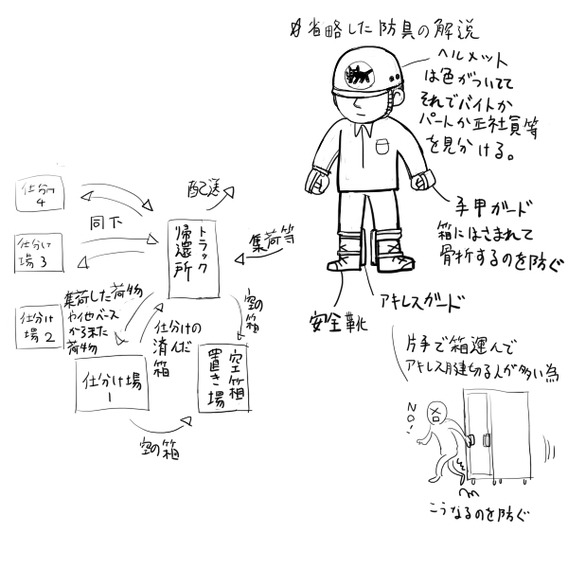 省略した防具の解説
ヘルメット
は色がついてて
それでバイトか
パートか正社員等
を見分ける。
手甲ガード
箱にはさまれて
骨折するのを防ぐ
アキレスガード
安全靴
片手で箱運んで
アキレス腱切る人が多い為
NO!
こうなるのを防ぐ
配送
仕分け
4
同下
トラック
帰還所
集荷等
仕分け
場3
集荷した荷物
や他ベース
から来た
荷物
仕分け
場2
仕分けの
済んだ
箱
空の箱
仕分け場
1
空箱
置き場
空の箱